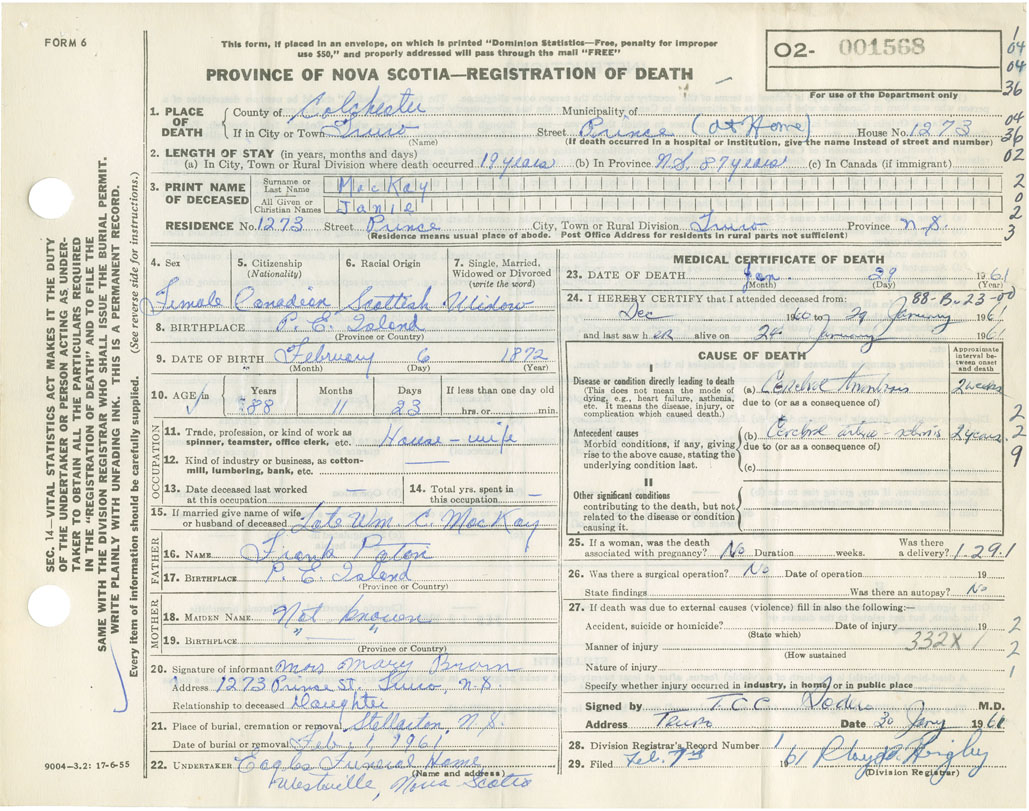 FORM 6
This form, if placed in an envelope, on which is printed "Dominion Statistics—Free, penalty for improper
use $50," and properly addressed will pass through the mail "FREE"
O2- 001568
For use of the Department only
PROVINCE OF NOVA SCOTIA—REGISTRATION OF DEATH
1
04
04
36
04
36
02
2
0
2
3
1. PLACE OF DEATH
County of Colchester Municipality of
If in City or Town Truro (Name) Street Prince (at Home) House No. 1273
(If death occurred in a hospital or institution, give the name instead of street and number)
2. LENGTH OF STAY (in years, months and days)
(a) In City, Town or Rural Division where death occurred 19 years (b) In Province N.S. 87 years (c) In Canada (if immigrant)
3. PRINT NAME OF DECEASED
Surname or Last Name MacKay
All Given or Christian Names Janie
RESIDENCE No. 1273 Street Prince City, Town or Rural Division Truro Province N.S.
(Residence means usual place of abode. Post Office Address for residents in rural parts not sufficient)
4. Sex 5. Citizenship (Nationality) 6. Racial Origin 7. Single, Married, Widowed or Divorced (write the word)
Female Canadian Scottish Widow
8. BIRTHPLACE P. E. Island
(Province or Country)
9. DATE OF BIRTH February 6 1872
(Month) (Day) (Year)
10. AGE in Years Months Days If less than one day old
88 11 23 hrs. or min.
OCCUPATION
11. Trade, profession, or kind of work as spinner, teamster, office clerk, etc. House-wife
12. Kind of industry or business, as cotton-mill, lumbering, bank, etc. —
13. Date deceased last worked at this occupation — 14. Total yrs. spent in this occupation —
15. If married give name of wife or husband of deceased Late Wm C. MacKay
FATHER
16. NAME Frank Paton
17. BIRTHPLACE P. E. Island
(Province or Country)
MOTHER
18. MAIDEN NAME Not known
19. BIRTHPLACE " — "
(Province or Country)
20. Signature of informant Mrs Mary Brown
Address 1273 Prince St. Truro, N.S.
Relationship to deceased Daughter
21. Place of burial, cremation or removal Stellarton, N.S.
Date of burial or removal Feb 1, 1961
22. UNDERTAKER Eagles Funeral Home
(Name and address)
Westville, Nova Scotia
MEDICAL CERTIFICATE OF DEATH
23. DATE OF DEATH Jan. 29 1961
(Month) (Day) (Year)
88-B-23-00
24. I HEREBY CERTIFY that I attended deceased from:
Dec 1960 to 29 January 1961
and last saw her alive on 24 January 1961
CAUSE OF DEATH
Approximate interval between onset and death
I
Disease or condition directly leading to death
(This does not mean the mode of dying, e.g., heart failure, asthenia, etc. It means the disease, injury, or complication which caused death.)
(a) Cerebral thrombosis 2 weeks
due to (or as a consequence of)
Antecedent causes
Morbid conditions, if any, giving rise to the above cause, stating the underlying condition last.
(b) Cerebral arterio-sclerosis 2 years
due to (or as a consequence of)
(c)
II
Other significant conditions
contributing to the death, but not related to the disease or condition causing it.
2
2
9
25. If a woman, was the death associated with pregnancy? No Duration weeks. Was there a delivery? 1.29.1
26. Was there a surgical operation? No Date of operation 19
State findings Was there an autopsy? No
27. If death was due to external causes (violence) fill in also the following:—
Accident, suicide or homicide? (State which) Date of injury 19
Manner of injury (How sustained) 332X
Nature of injury
2
2
1
Specify whether injury occurred in industry, in home, or in public place
Signed by T.C.C. M.D.
Address Truro Date 30 Jany 1961
28. Division Registrar's Record Number 1
29. Filed Feb. 7th 1961
(Division Registrar)
SEC. 14—VITAL STATISTICS ACT MAKES IT THE DUTY
OF THE UNDERTAKER OR PERSON ACTING AS UNDER-
TAKER TO OBTAIN ALL THE PARTICULARS REQUIRED
IN THE "REGISTRATION OF DEATH" AND TO FILE THE
SAME WITH THE DIVISION REGISTRAR WHO SHALL ISSUE THE BURIAL PERMIT.
WRITE PLAINLY WITH UNFADING INK. THIS IS A PERMANENT RECORD.
Every item of information should be carefully supplied. (See reverse side for instructions.)
9004—3.2: 17-6-55